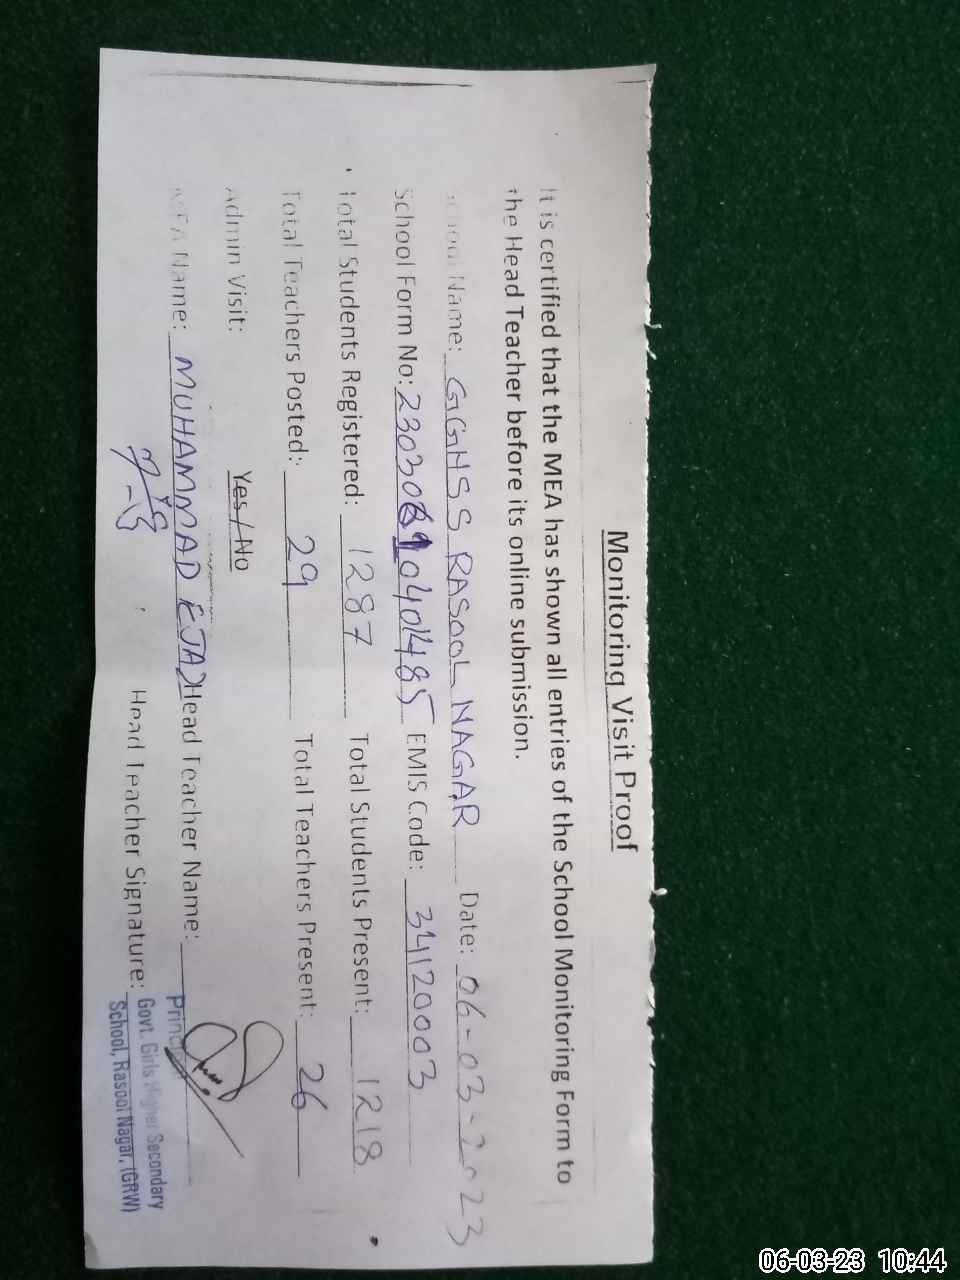 Monitoring Visit Proof
It is certified that the MEA has shown all entries of the School Monitoring Form to
the Head Teacher before its online submission.
School Name: GGHSS RASOOL NAGAR Date: 06-03-2023
School Form No: EMIS Code: 34120003
Total Students Registered: 1287 Total Students Present: 1218
Total Teachers Posted: 29 Total Teachers Present: 26
Admin Visit: Yes/No
MEA Name: MUHAMMAD EJAZ Head Teacher Name:
Head Teacher Signature:
Principal
Govt. Girls Higher Secondary
School, Rasool Nagar, (GRW)
06-03-23 10:44